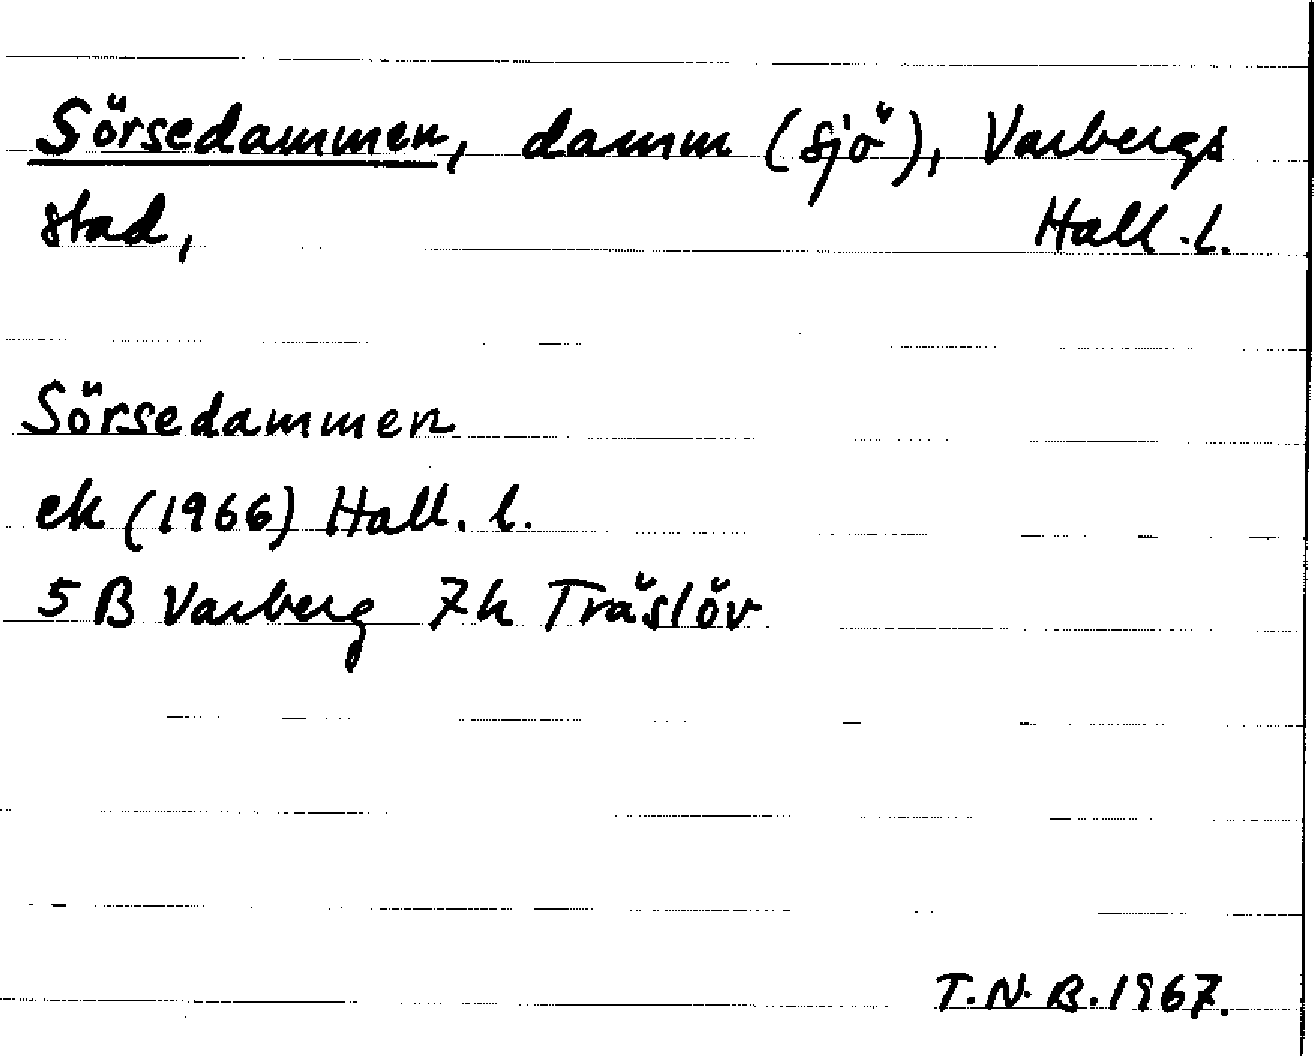 Sörsedammen, damm (sjö), Varbergs
stad, Hall.l.
Sörsedammen
ek (1966) Hall. l.
5 B Varberg 7h Träslöv
T.N.B.1967.